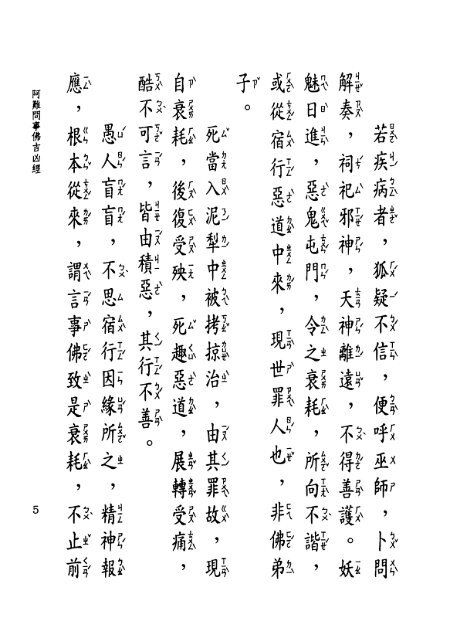 若疾病者，狐疑不信，便呼巫師，卜問
解奏，祠祀邪神，天神離遠，不得善護。妖
魅日進，惡鬼屯門，令之衰耗，所向不諧，
或從宿行惡道中來，現世罪人也，非佛弟
子。
死當入泥犁中被拷掠治，由其罪故，現
自衰耗，後復受殃，死趣惡道，展轉受痛，
酷不可言，皆由積惡，其行不善。
愚人盲盲，不思宿行因緣所之，精神報
應，根本從來，謂言事佛致是衰耗，不止前
阿難問事佛吉凶經
5